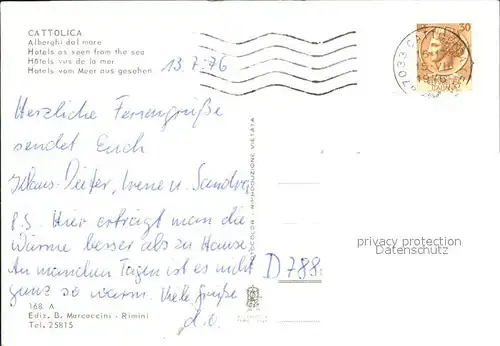 CATTOLICA
Alberghi dal mare
Hotels as seen from the sea
Hôtels vus de la mer
Hotels vom Meer aus gesehen
13.7.76
30
47033 CATTOLICA
Herzliche Feriengrüße
sendet Euch
Klaus-Peter, Irene u. Sandra
P.S. Hier erträgt man die
Wärme besser als zu Hause
An manchen Tagen ist es nicht
ganz so warm. Viele Grüße
d.o.
RIPRODUZIONE VIETATA
privacy protection
Datenschutz
D 788.
168 A
Ediz. B. Marcaccini - Rimini
Tel. 25815